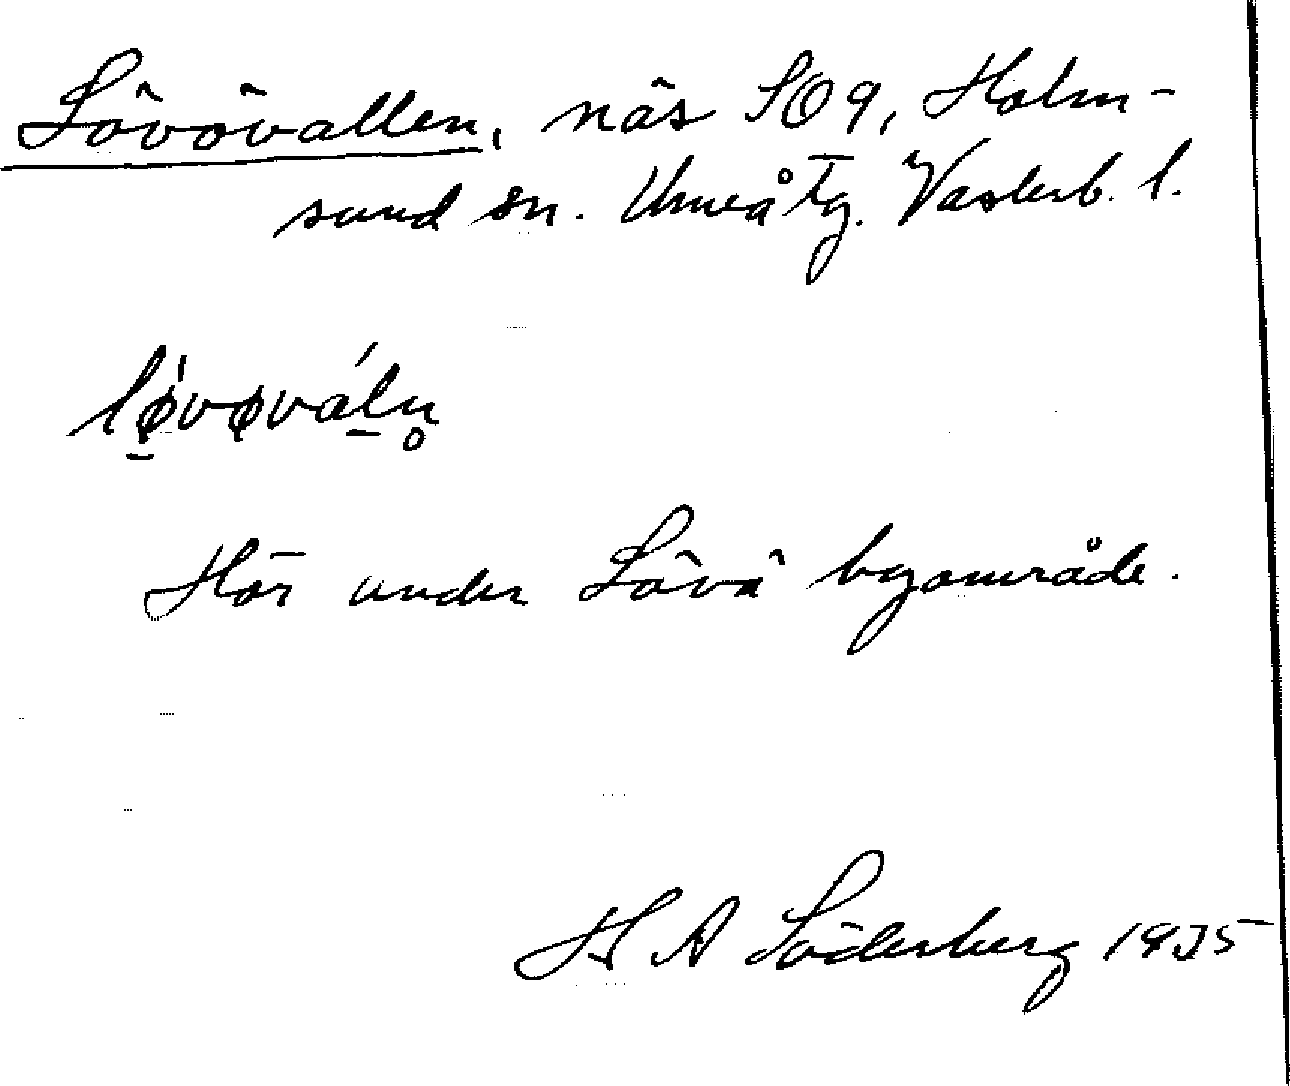 Lövövallen, näs SO 9, Holm-
sund sn. Umeå tg. Västerb. l.
løvøváln̥
Hör under Lövö byområde.
H A Söderberg 1935